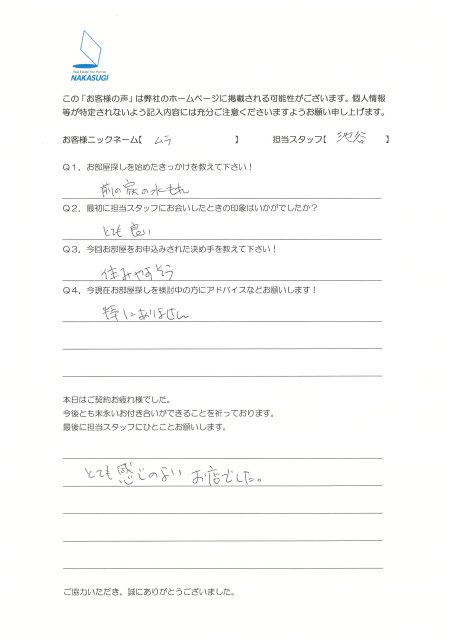 Real Estate Your Partner
NAKASUGI
この「お客様の声」は弊社のホームページに掲載される可能性がございます。個人情報
等が特定されないよう記入内容には充分ご注意くださいますようお願い申し上げます。
お客様ニックネーム【 ムラ 】 担当スタッフ【 池谷 】
Q1．お部屋探しを始めたきっかけを教えて下さい！
前の家の水もれ
Q2．最初に担当スタッフにお会いしたときの印象はいかがでしたか？
とても良い
Q3．今回お部屋をお申込みされた決め手を教えて下さい！
住みやすそう
Q4．今現在お部屋探しを検討中の方にアドバイスなどお願いします！
特にありません
本日はご契約お疲れ様でした。
今後とも末永いお付き合いができることを祈っております。
最後に担当スタッフにひとことお願いします。
とても感じのよい お店でした。
ご協力いただき、誠にありがとうございました。